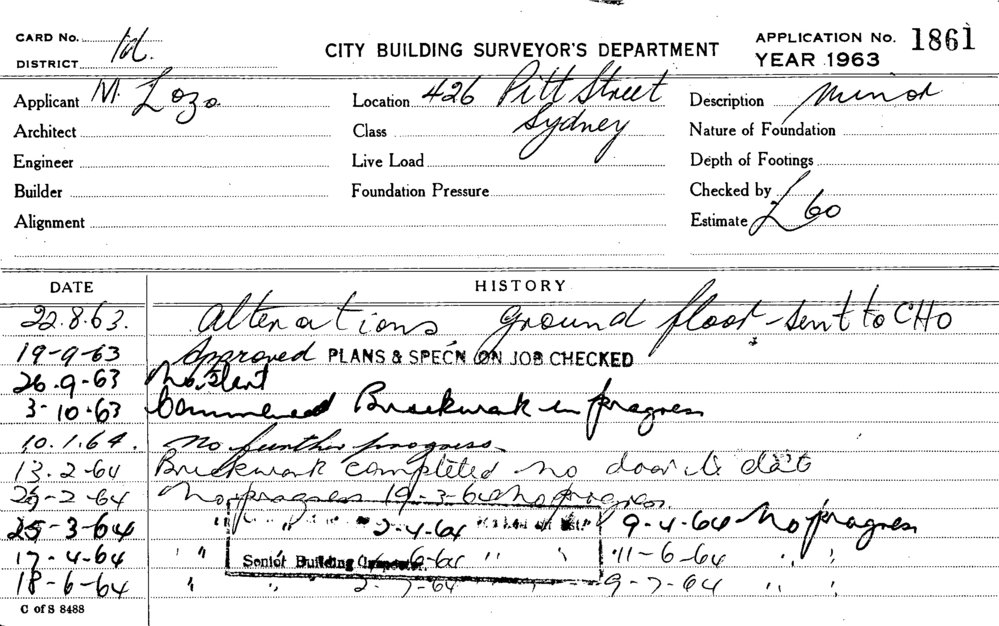 CARD No.
DISTRICT
CITY BUILDING SURVEYOR'S DEPARTMENT
APPLICATION No. 1861
YEAR 1963
Applicant M Lozo
Location 426 Pitt Street
Description Minor
Architect
Class Sydney
Nature of Foundation
Engineer
Live Load
Depth of Footings
Builder
Foundation Pressure
Checked by
Alignment
Estimate £60
DATE HISTORY
22.8.63. Alterations ground floor - sent to CHO
19-9-63 Approved PLANS & SPEC'N ON JOB CHECKED
26.9-63 No Start
3-10-63 Commenced Brickwork in progress
10.1.64. No further progress
13.2-64 Brickwork completed no door to date
-2-64 No progress 19-3-64 No progress
25-3-64 " " 2-4-64 9-4-64 No progress
17-4-64 " " -6-64 " " 11-6-64 " "
Senior Building Inspector.
18-6-64 " " 2-7-64 9-7-64 " "
C of S 8488